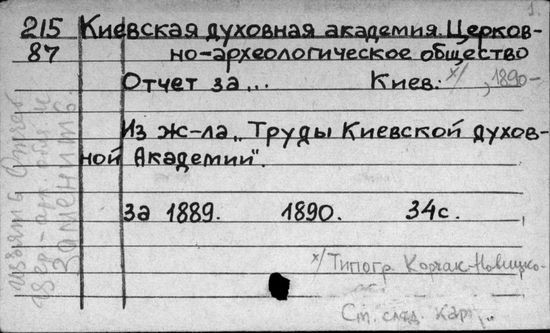 1.
215 Киевская духовная академия. Церков-
87 но-археологическое общество
Отчет за... Киев. х/, 1890-
Из ж-ла „Труды Киевской духов-
ной Академии".
за 1889. 1890. 34с.
х/ Типогр. Корчак-Новицко-
го.
См. след. карт.
заменить